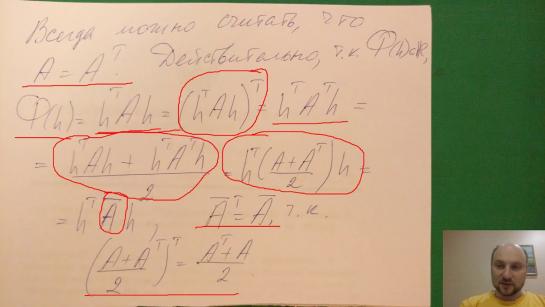 Всегда можно считать, что
A = Aᵀ. Действительно, т.к. Φ(h)∈ℝ,
Φ(h) = hᵀAh = (hᵀAh)ᵀ = hᵀAᵀh =
= (hᵀAh + hᵀAᵀh)/2 = hᵀ((A+Aᵀ)/2)h =
= hᵀĀh, Āᵀ = Ā, т.к.
((A+Aᵀ)/2)ᵀ = (Aᵀ+A)/2.